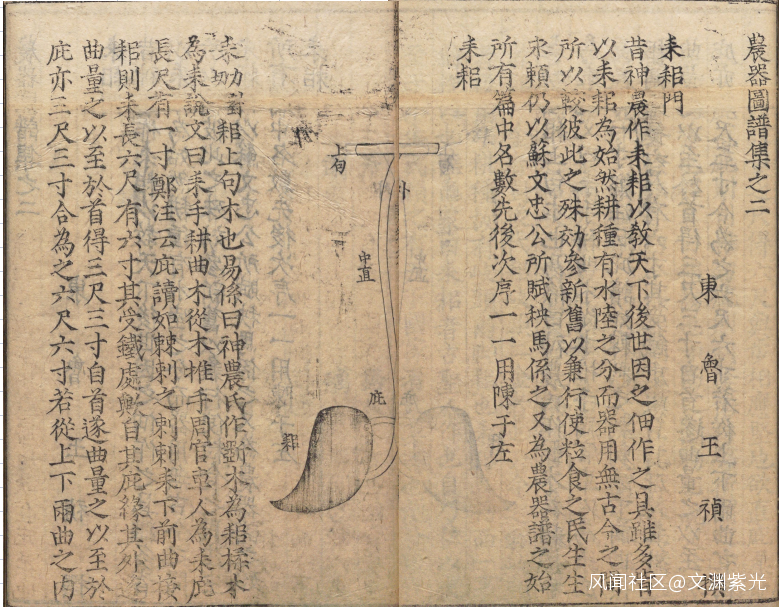 農器圖譜集之二
東魯王禎
耒耜門
昔神農作耒耜以教天下後世因之佃作之具雖多皆
以耒耜為始然耕種有水陸之分而器用無古今之
所以較彼此之殊効參新舊以兼行使粒食之民生生
永頼仍以蘇文忠公所賦秧馬係之又為農器譜之始
所有篇中名數先後次序一一用陳于左
耒耜
上句
中直
庇
耜
耒耜上句木也易係曰神農氏作斵木為耜揉木
為耒說文曰耒手耕曲木從木推手周官車人為耒庇
長尺有一寸鄭注云庇讀如棘刺之刺刺耒下前曲接
耜則耒長六尺有六寸其受鐵處歟自其庇緣其外遂
曲量之以至於首得三尺三寸自首遂曲量之以至於
庇亦三尺三寸合為之六尺六寸若從上下兩曲之内
风闻社区@文渊紫光